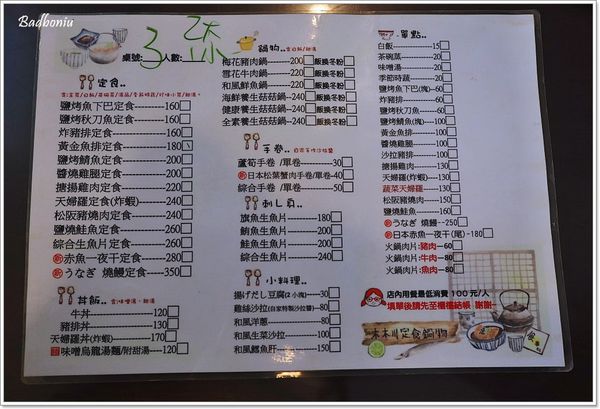 Badboniu
桌號: 3 人數:
定食..
鹽烤魚下巴定食----160
鹽烤秋刀魚定食----160
炸豬排定食----160
黃金魚排定食----180
鹽烤鯖魚定食----200
醬燒雞腿定食----200
搪揚雞肉定食----220
天婦羅定食(炸蝦)----240
松阪豬燒肉定食----240
鹽燒鮭魚定食----260
綜合生魚片定食----260
赤魚一夜干定食----280
うなぎ 燒鰻定食----350
丼飯..
牛丼----120
豬排丼----130
天婦羅丼(炸蝦)----170
味噌烏龍湯麵/附甜湯----120
鍋物..
梅花豬肉鍋----200 飯換冬粉
雪花牛肉鍋----200 飯換冬粉
和風鮮魚鍋----240 飯換冬粉
海鮮養生菇菇鍋--240 飯換冬粉
健康養生菇菇鍋--240 飯換冬粉
全素養生菇菇鍋--240 飯換冬粉
手卷..
蘆筍手卷 /單卷----30
日本松葉蟹肉手卷/單卷--40
綜合手卷 /單卷----50
刺し身..
旗魚生魚片----180
鮪魚生魚片----200
鮭魚生魚片----200
綜合生魚片----200
小料理..
揚げだし豆腐(2小塊)----30
雞絲沙拉(自家特製沙拉醬)----80
和風洋蔥----80
和風生菜沙拉----80
和風鱈魚肝----150
單點..
白飯----15
茶碗蒸----20
味噌湯----20
季節時蔬----20
鹽烤魚下巴(塊)----60
炸豬排----60
鹽烤秋刀魚----60
黃金魚排----80
鹽烤鯖魚(塊)----90
醬燒雞腿----90
沙拉豬排----90
搪揚雞肉----130
天婦羅(炸蝦)----150
蔬菜天婦羅----150
松阪豬肉----150
鹽燒鮭魚----150
うなぎ 燒鰻----250
日本赤魚一夜干(尾)--180
火鍋肉片:豬肉--60
火鍋肉片:牛肉--80
火鍋肉片:魚肉--80
店內用餐最低消費 100元/人
填單後請先至櫃檯結帳 謝謝~
味本川定食鍋物